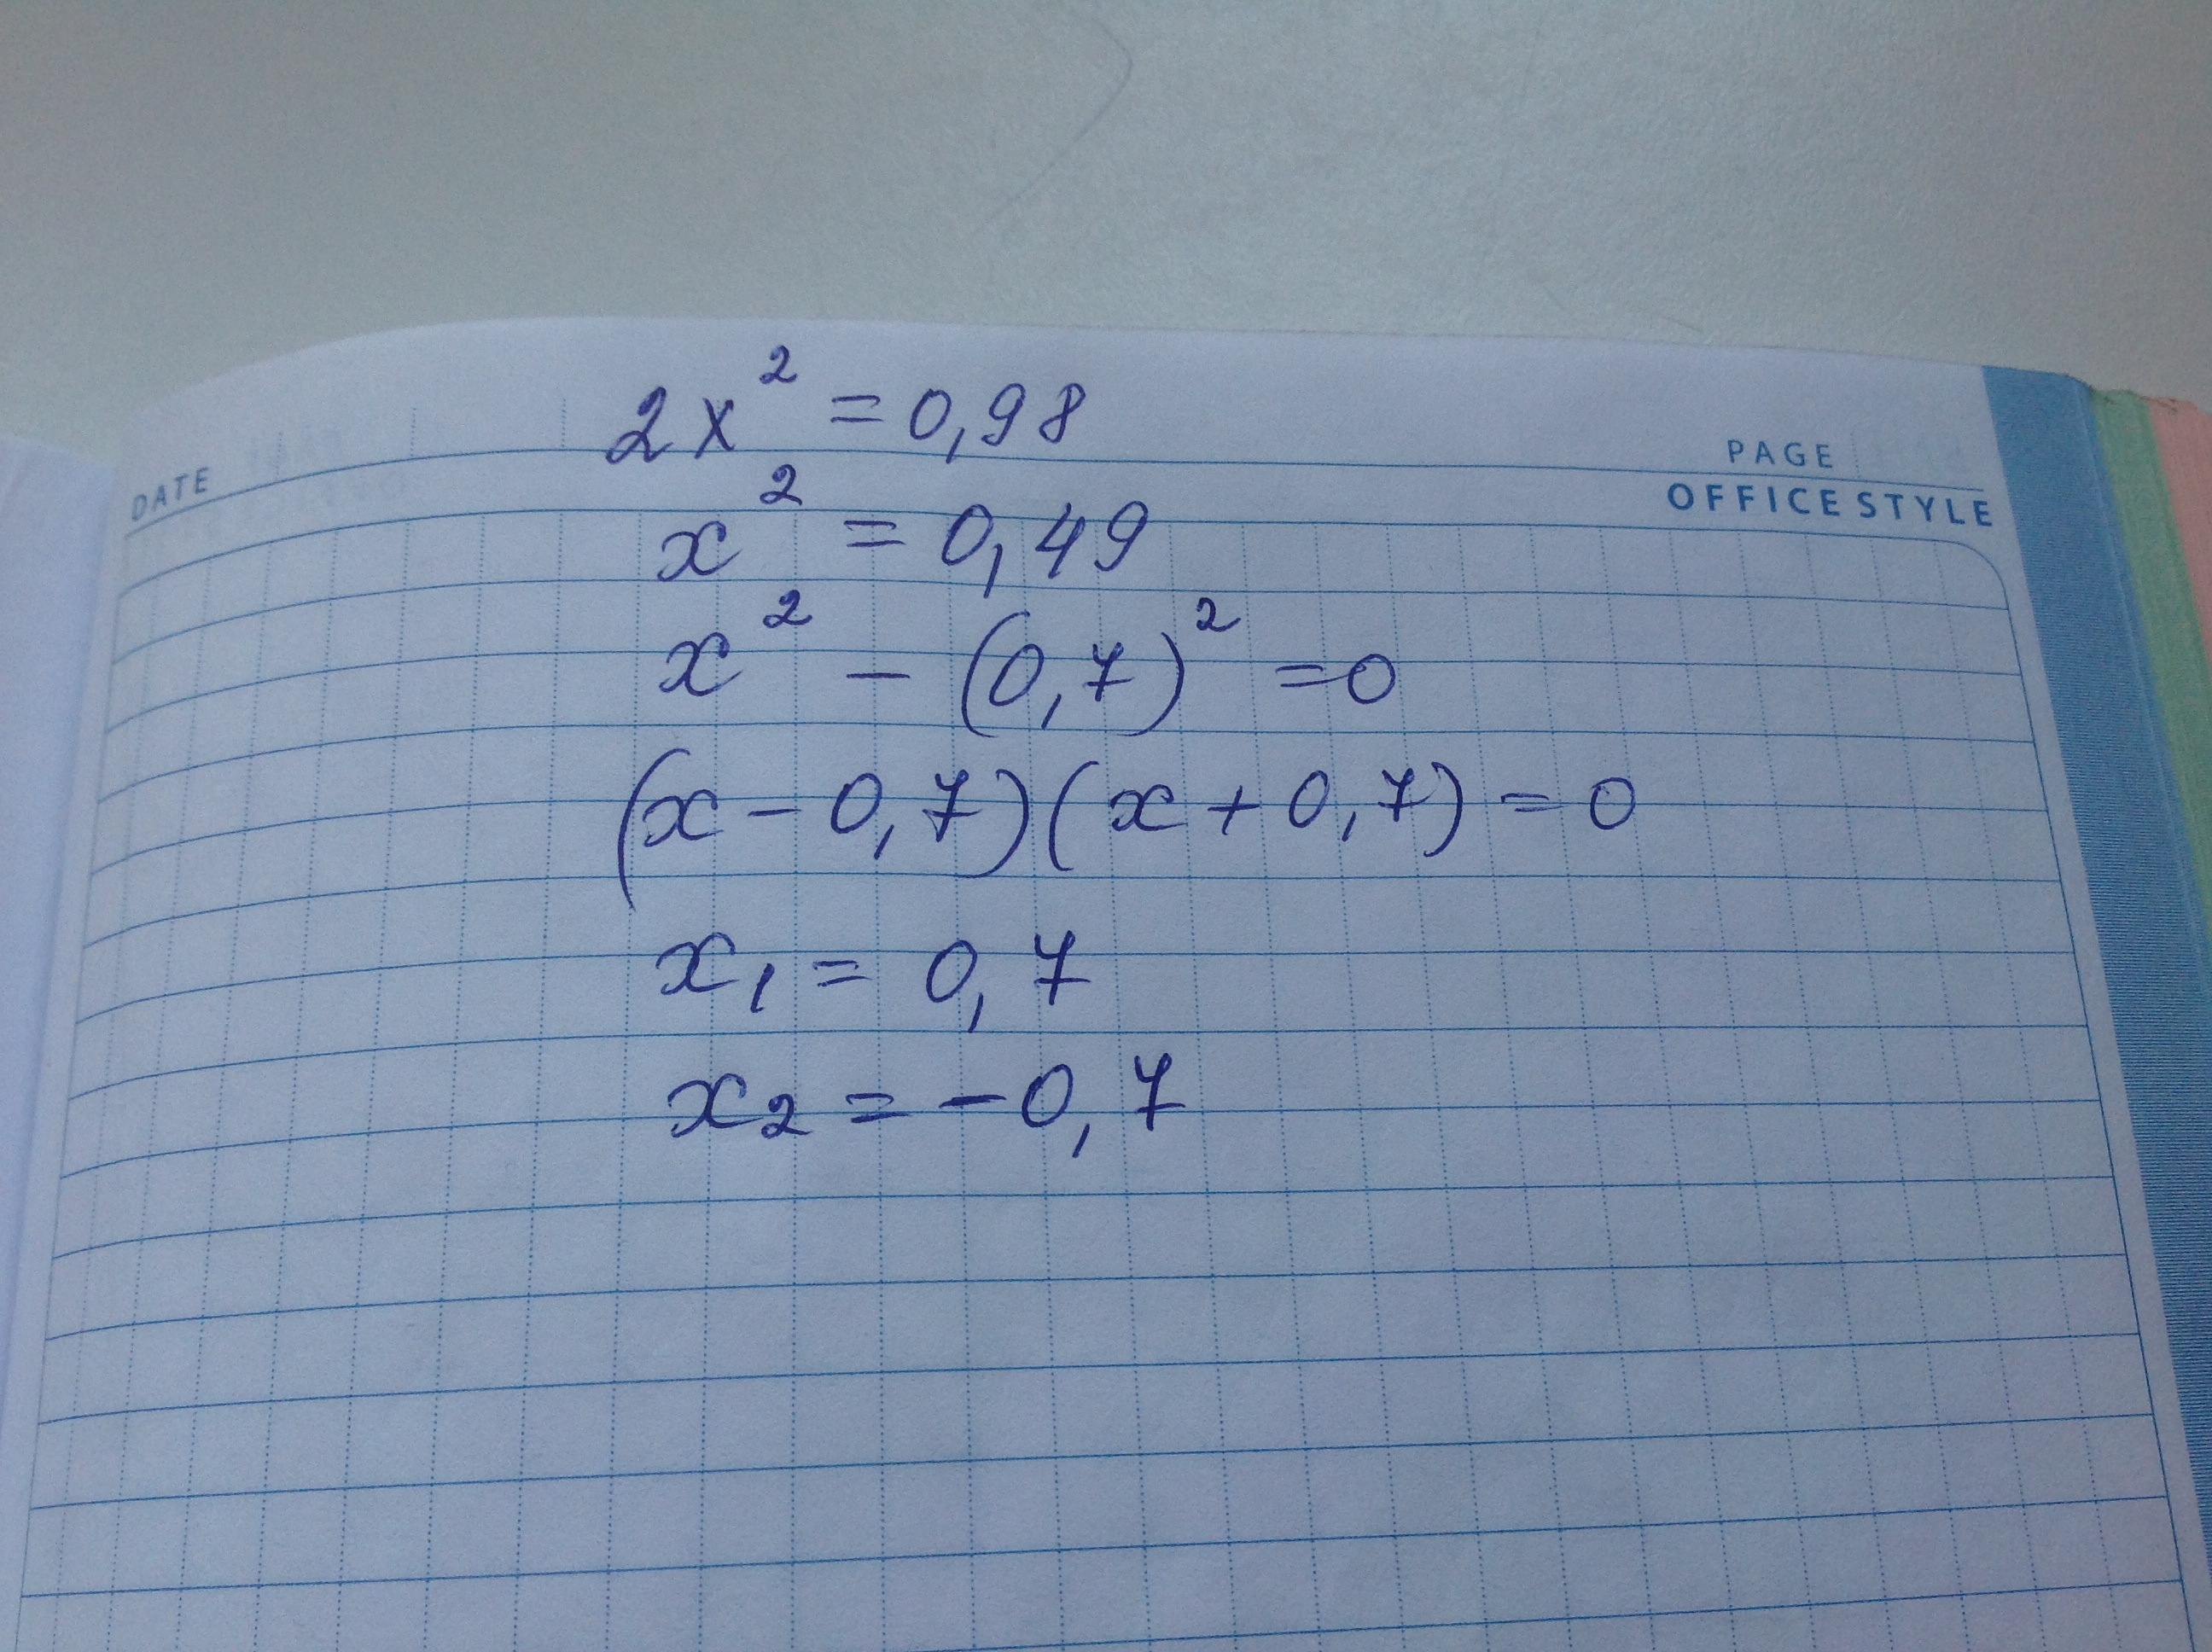 2x² = 0,98
DATE
PAGE
OFFICE STYLE
x² = 0,49
x² - (0,7)² = 0
(x - 0,7)(x + 0,7) = 0
x₁ = 0,7
x₂ = -0,7